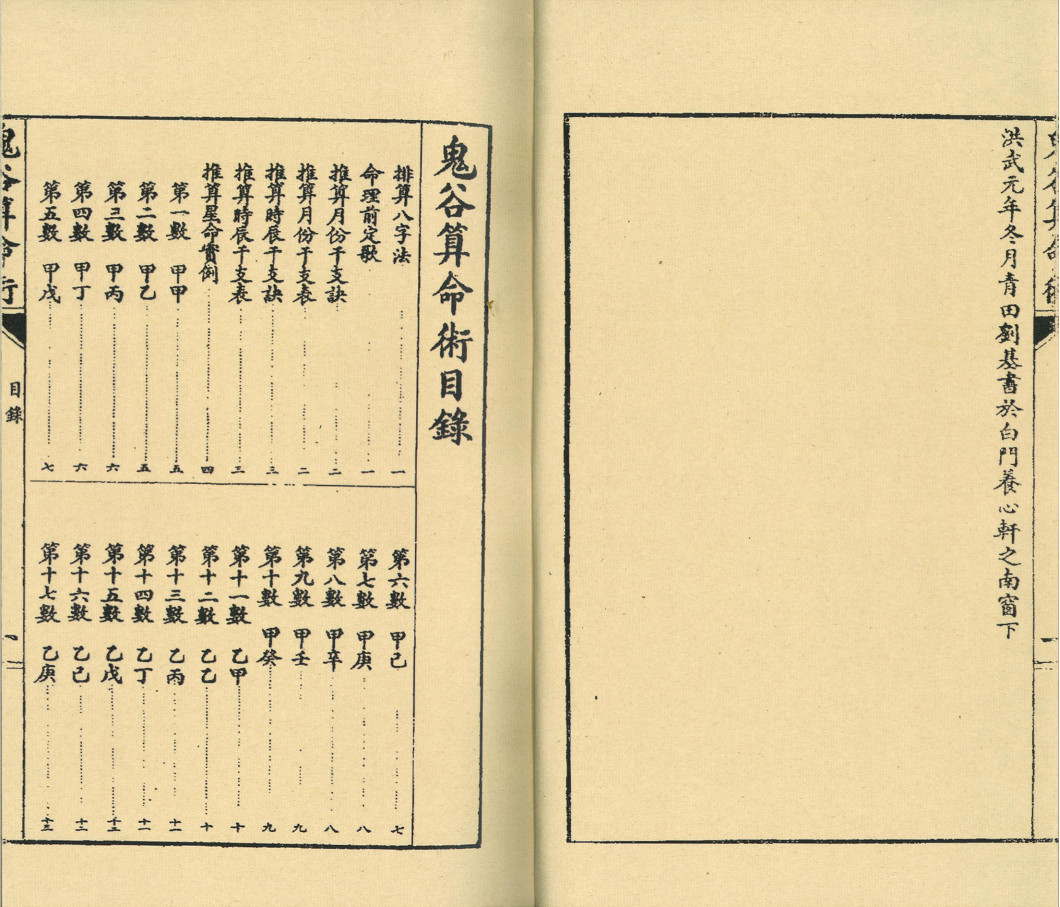 鬼谷算命術
一
洪武元年冬月青田劉基書於白門養心軒之南窗下
鬼谷算命術目錄
排算八字法 一
命理前定歌 一
推算月份干支訣 二
推算月份干支表 二
推算時辰干支訣 三
推算時辰干支表 三
推算星命實例 四
第一數 甲甲 五
第二數 甲乙 五
第三數 甲丙 六
第四數 甲丁 六
第五數 甲戊 七
第六數 甲己 七
第七數 甲庚 八
第八數 甲辛 八
第九數 甲壬 九
第十數 甲癸 九
第十一數 乙甲 十
第十二數 乙乙 十
第十三數 乙丙 十一
第十四數 乙丁 十一
第十五數 乙戊 十二
第十六數 乙己 十二
第十七數 乙庚 十三
鬼谷算命術
目錄
一